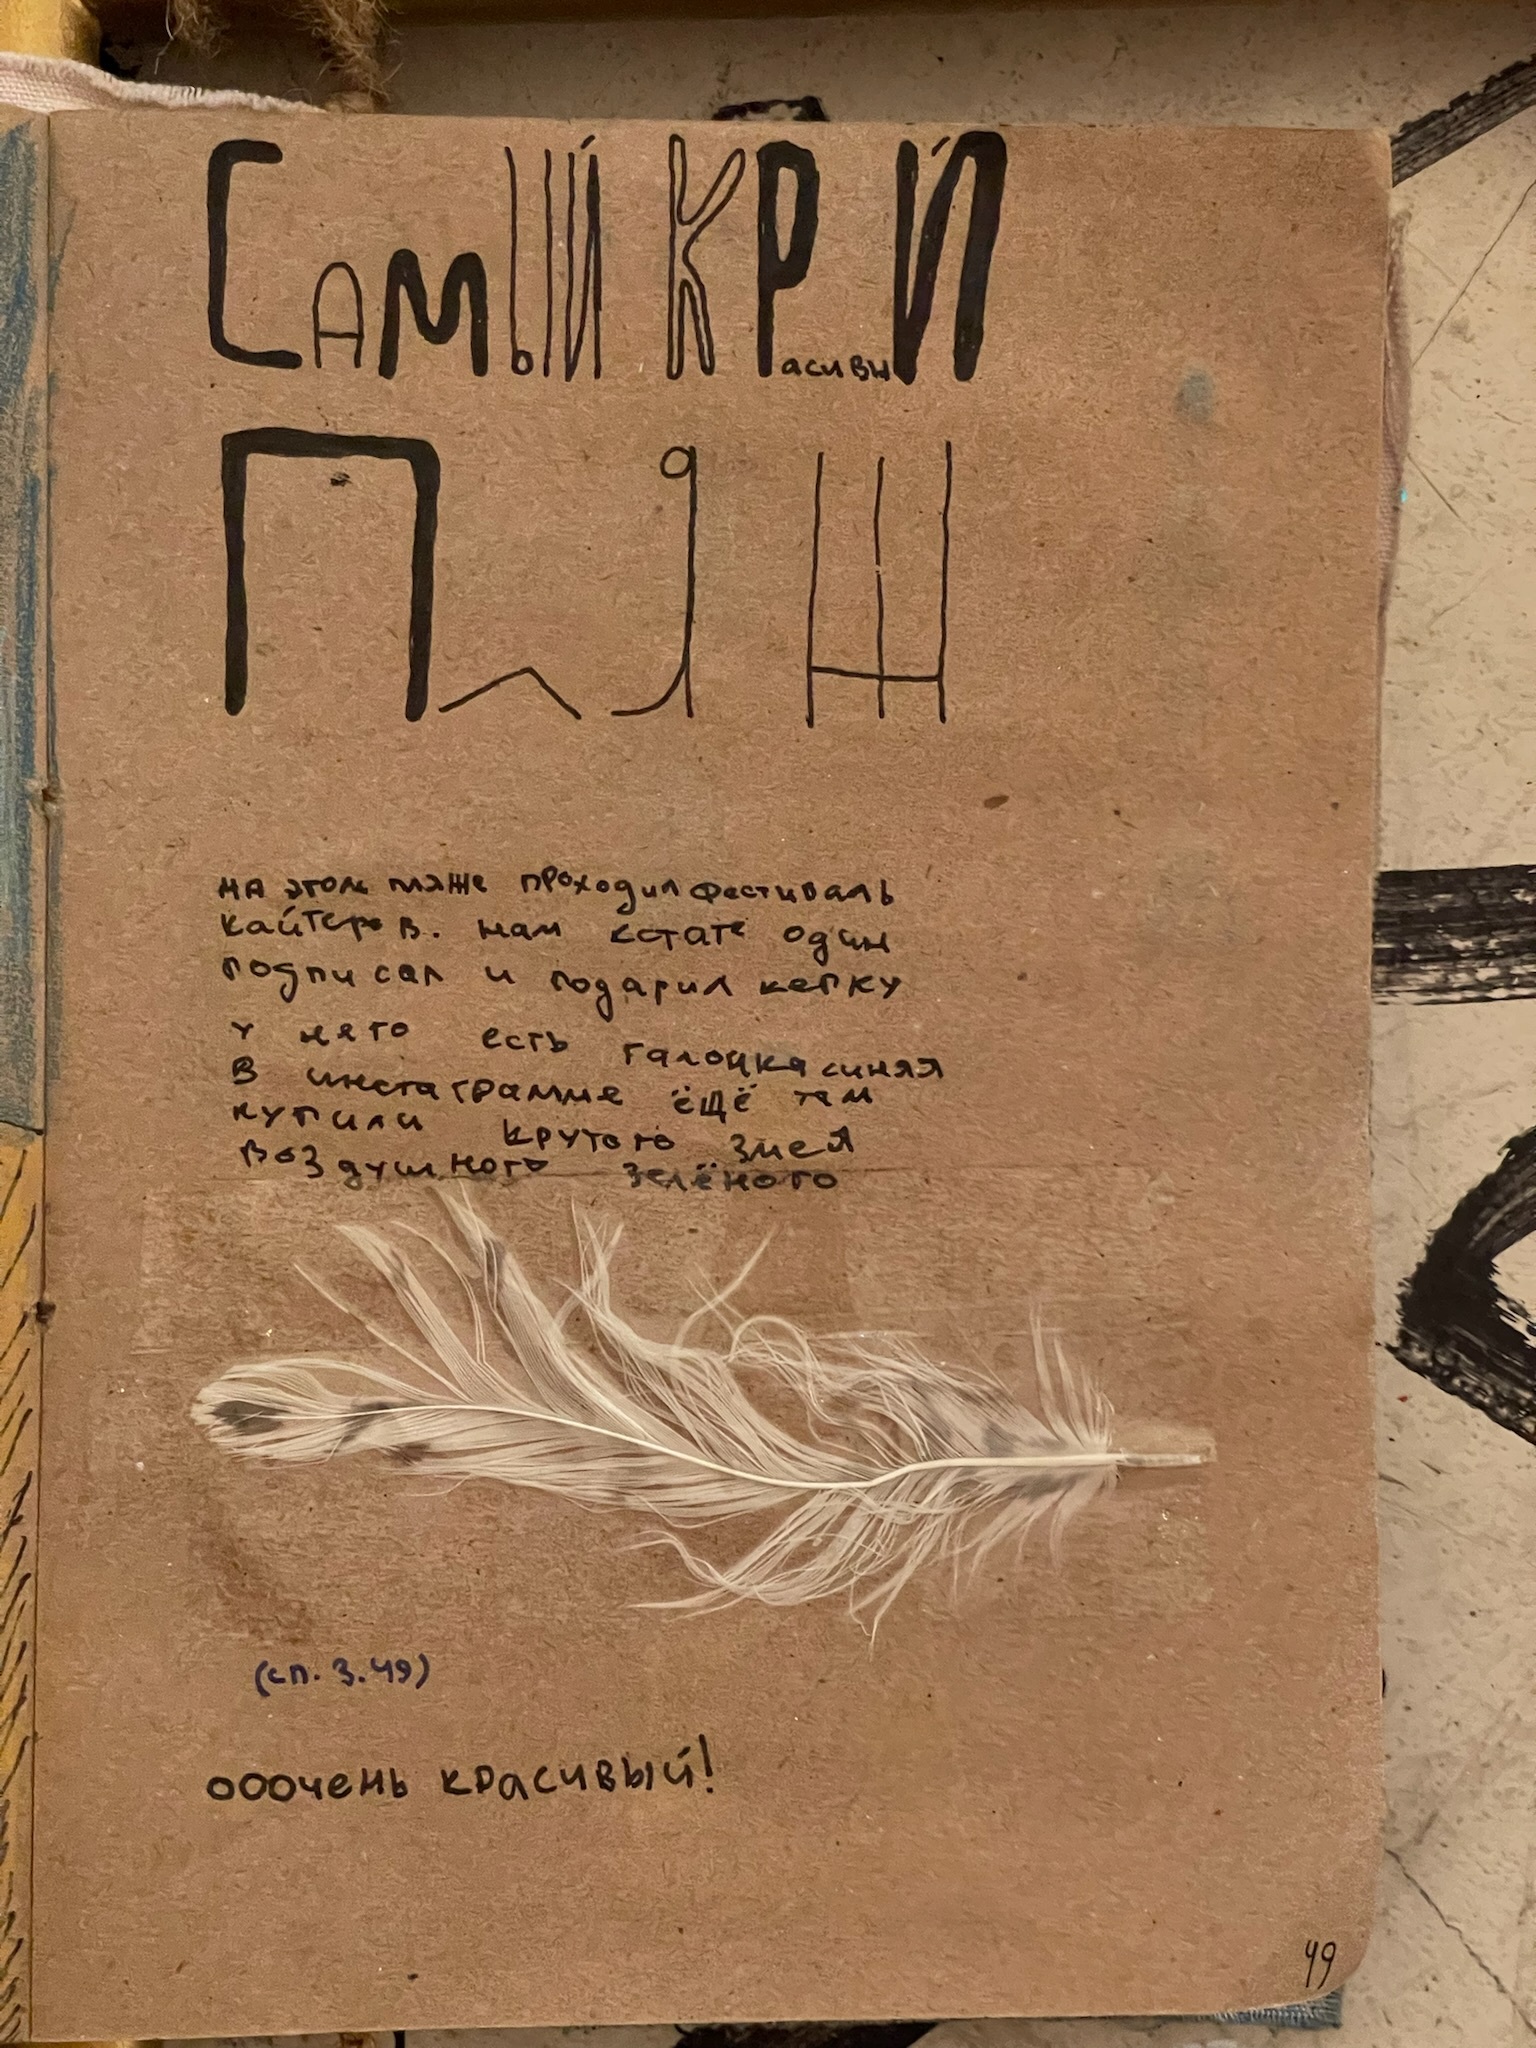 СамЫЙ КРасивыЙ
Пляж
на этом пляже проходил фестиваль
кайтеров. нам кстате один
подписал и подарил кепку
у него есть галочка синяя
В инстаграмме ёщё там
купили крутого змея
воздушного зелёного
(сп. 3.49)
ОООчень красивый!
49